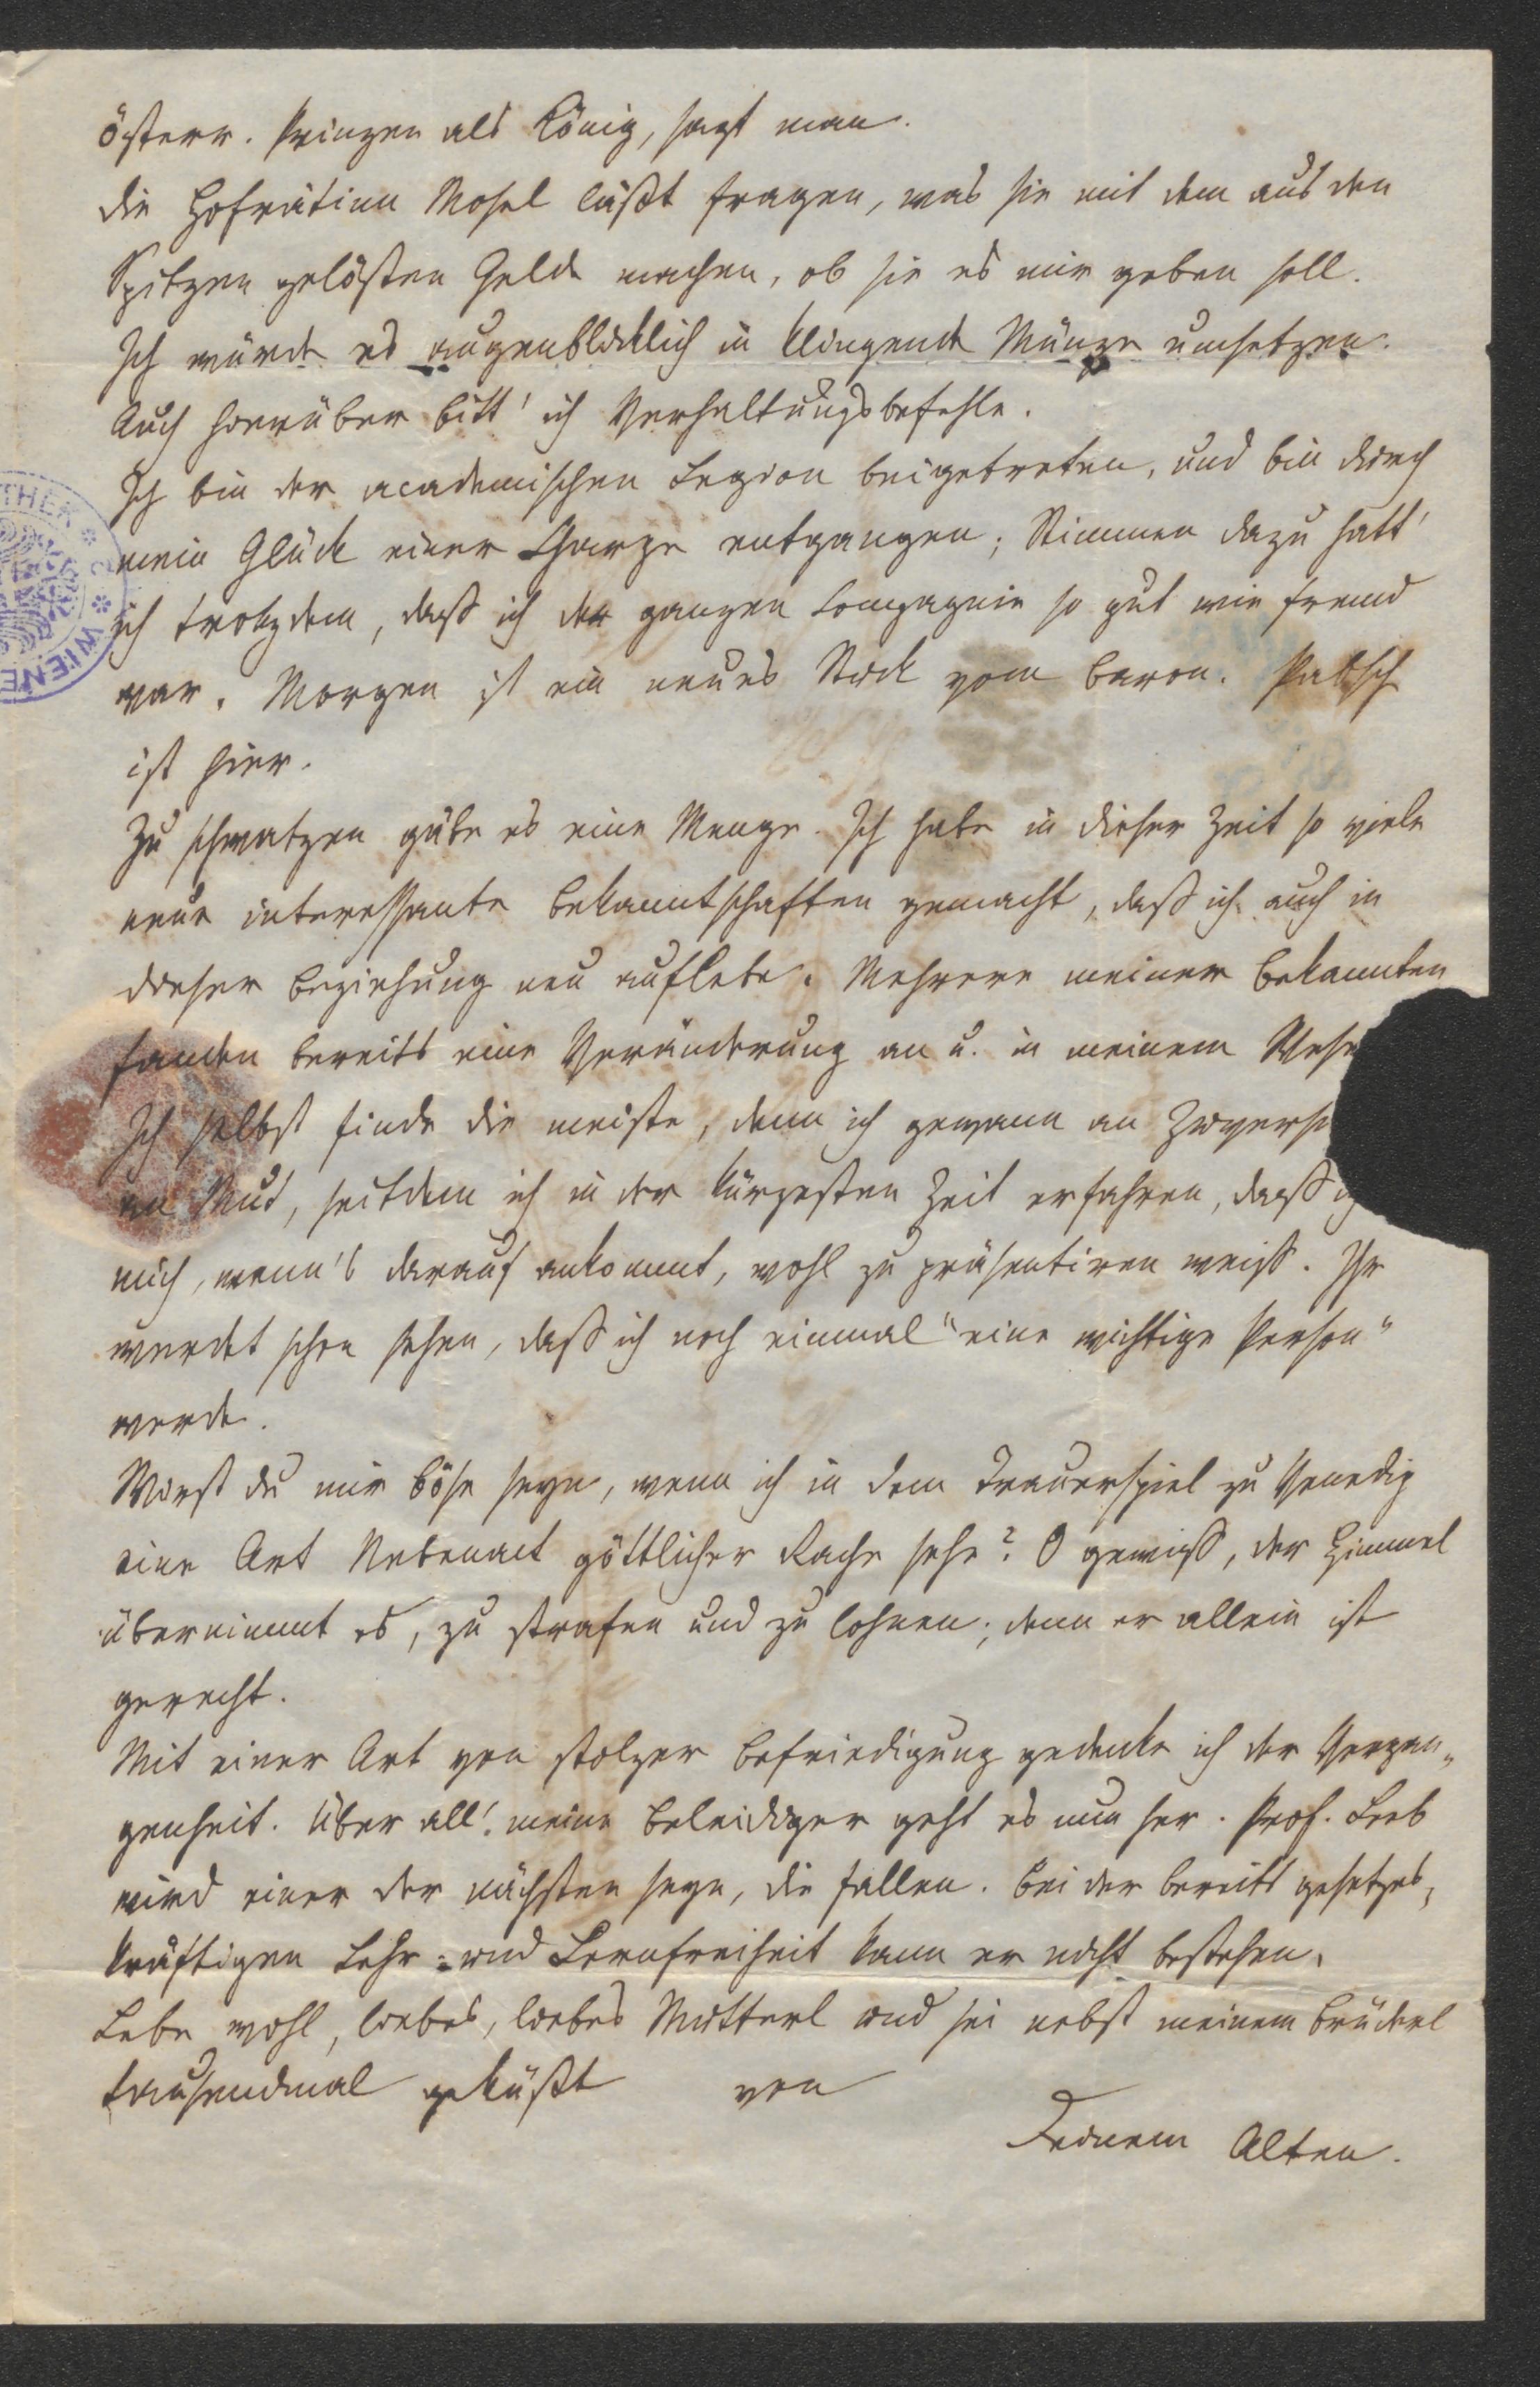 österr. Prinzen als König, sagt man.
Die Hofräthinn Mosel läßt fragen, was sie mit dem aus den
Spitzen gelösten Gelde machen, ob sie es mir geben soll.
Ich würde es augenblicklich in klingende Münze umsetzen.
Auch hierüber bitt' ich Verhaltungsbefehle.
Ich bin der academischen Legion beigetreten, und bin durch
mein Glück einer Charge entgangen; Stimmen dazu hatt'
ich trotzdem, daß ich der ganzen Compagnie so gut wie fremd
war. Morgen ist ein neues Stück vom Baron.
ist hier.
Zu schwatzen gäbe es eine Menge. Ich habe in dieser Zeit so viele
neue interessante Bekanntschaften gemacht, daß ich auch in
dieser Beziehung neu auflebe. Mehrere meiner Bekannten
fanden bereits eine Veränderung an u. in meinem Wese
Ich selbst finde die meiste, denn ich gewann an
an Mut, seitdem ich in der kürzesten Zeit erfahren, daß ich
mich, wenn's darauf ankommt, wohl zu präsentiren weiß. Ihr
werdet schon sehen, daß ich noch einmal "eine wichtige Person"
werde.
Wirst du mir böse seyn, wenn ich in dem Trauerspiel zu Venedig
eine Art Nebenact göttlicher Rache sehe? O gewiß, der Himmel
übernimmt es, zu strafen und zu lohnen; denn er allein ist
gerecht.
Mit einer Art von stolzer Befriedigung gedenke ich der Vergan„
genheit. Über all' meine Beleidiger geht es nun her. Prof. Leeb
wird einer der nächsten seyn, die fallen. Bei der bereits gesetzes„
kräftigen Lehr= und Lernfreiheit kann er nicht bestehen.
Lebe wohl, liebes, liebes Mutterl und sei nebst meinem Brüderl
tausendmal geküßt von
Deinem Alten.
THEK * WIENE